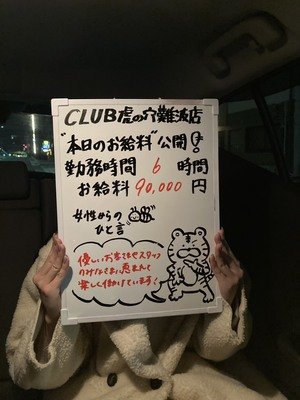 CLUB虎の穴難波店
"本日のお給料"公開!!
勤務時間 6 時間
お給料 90,000 円
女性からの
ひと言
優しいお客さまとスタッフ
のみなさまに恵まれて
楽しく働けています!